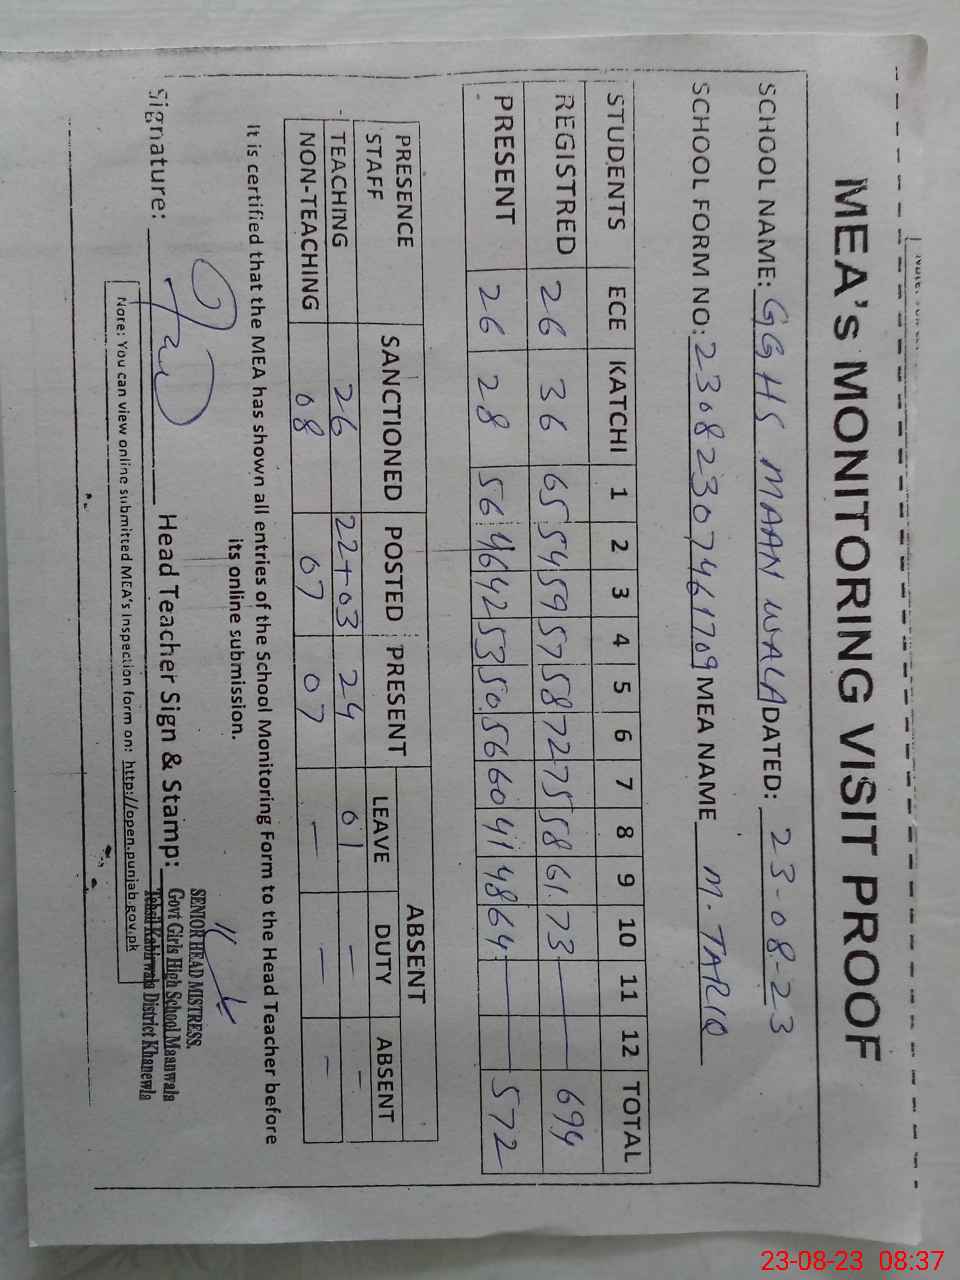 MEA's MONITORING VISIT PROOF
SCHOOL NAME: GGHS MAAN WALA DATED: 23-08-23
SCHOOL FORM NO: 23082307461709 MEA NAME M. TARIQ
STUDENTS ECE KATCHI 1 2 3 4 5 6 7 8 9 10 11 12 TOTAL
REGISTRED 26 36 65 54 59 57 58 72 75 58 61 73 — — 694
PRESENT 26 28 56 46 42 53 50 56 60 41 48 64 — — 572
PRESENCE STAFF SANCTIONED POSTED PRESENT ABSENT
LEAVE DUTY ABSENT
TEACHING 26 22+03 24 01 — —
NON-TEACHING 08 07 07 — — —
It is certified that the MEA has shown all entries of the School Monitoring Form to the Head Teacher before
its online submission.
Signature: Head Teacher Sign & Stamp:
SENIOR HEAD MISTRESS.
Govt Girls High School Maanwala
Tehsil Kabirwala District Khanewla
Note: You can view online submitted MEA's Inspection form on: http://open.punjab.gov.pk
23-08-23 08:37